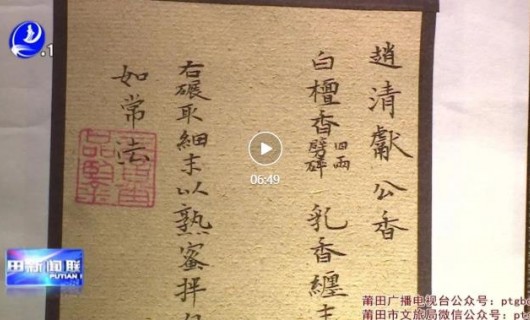 趙清獻公香
白檀香 四兩 劈碎 乳香纏末
右碾取細末以熟蜜拌
如常法
06:49
田新闻联
PUTIAN
莆田广播电视台公众号：ptgb
莆田市文旅局微信公众号：pt